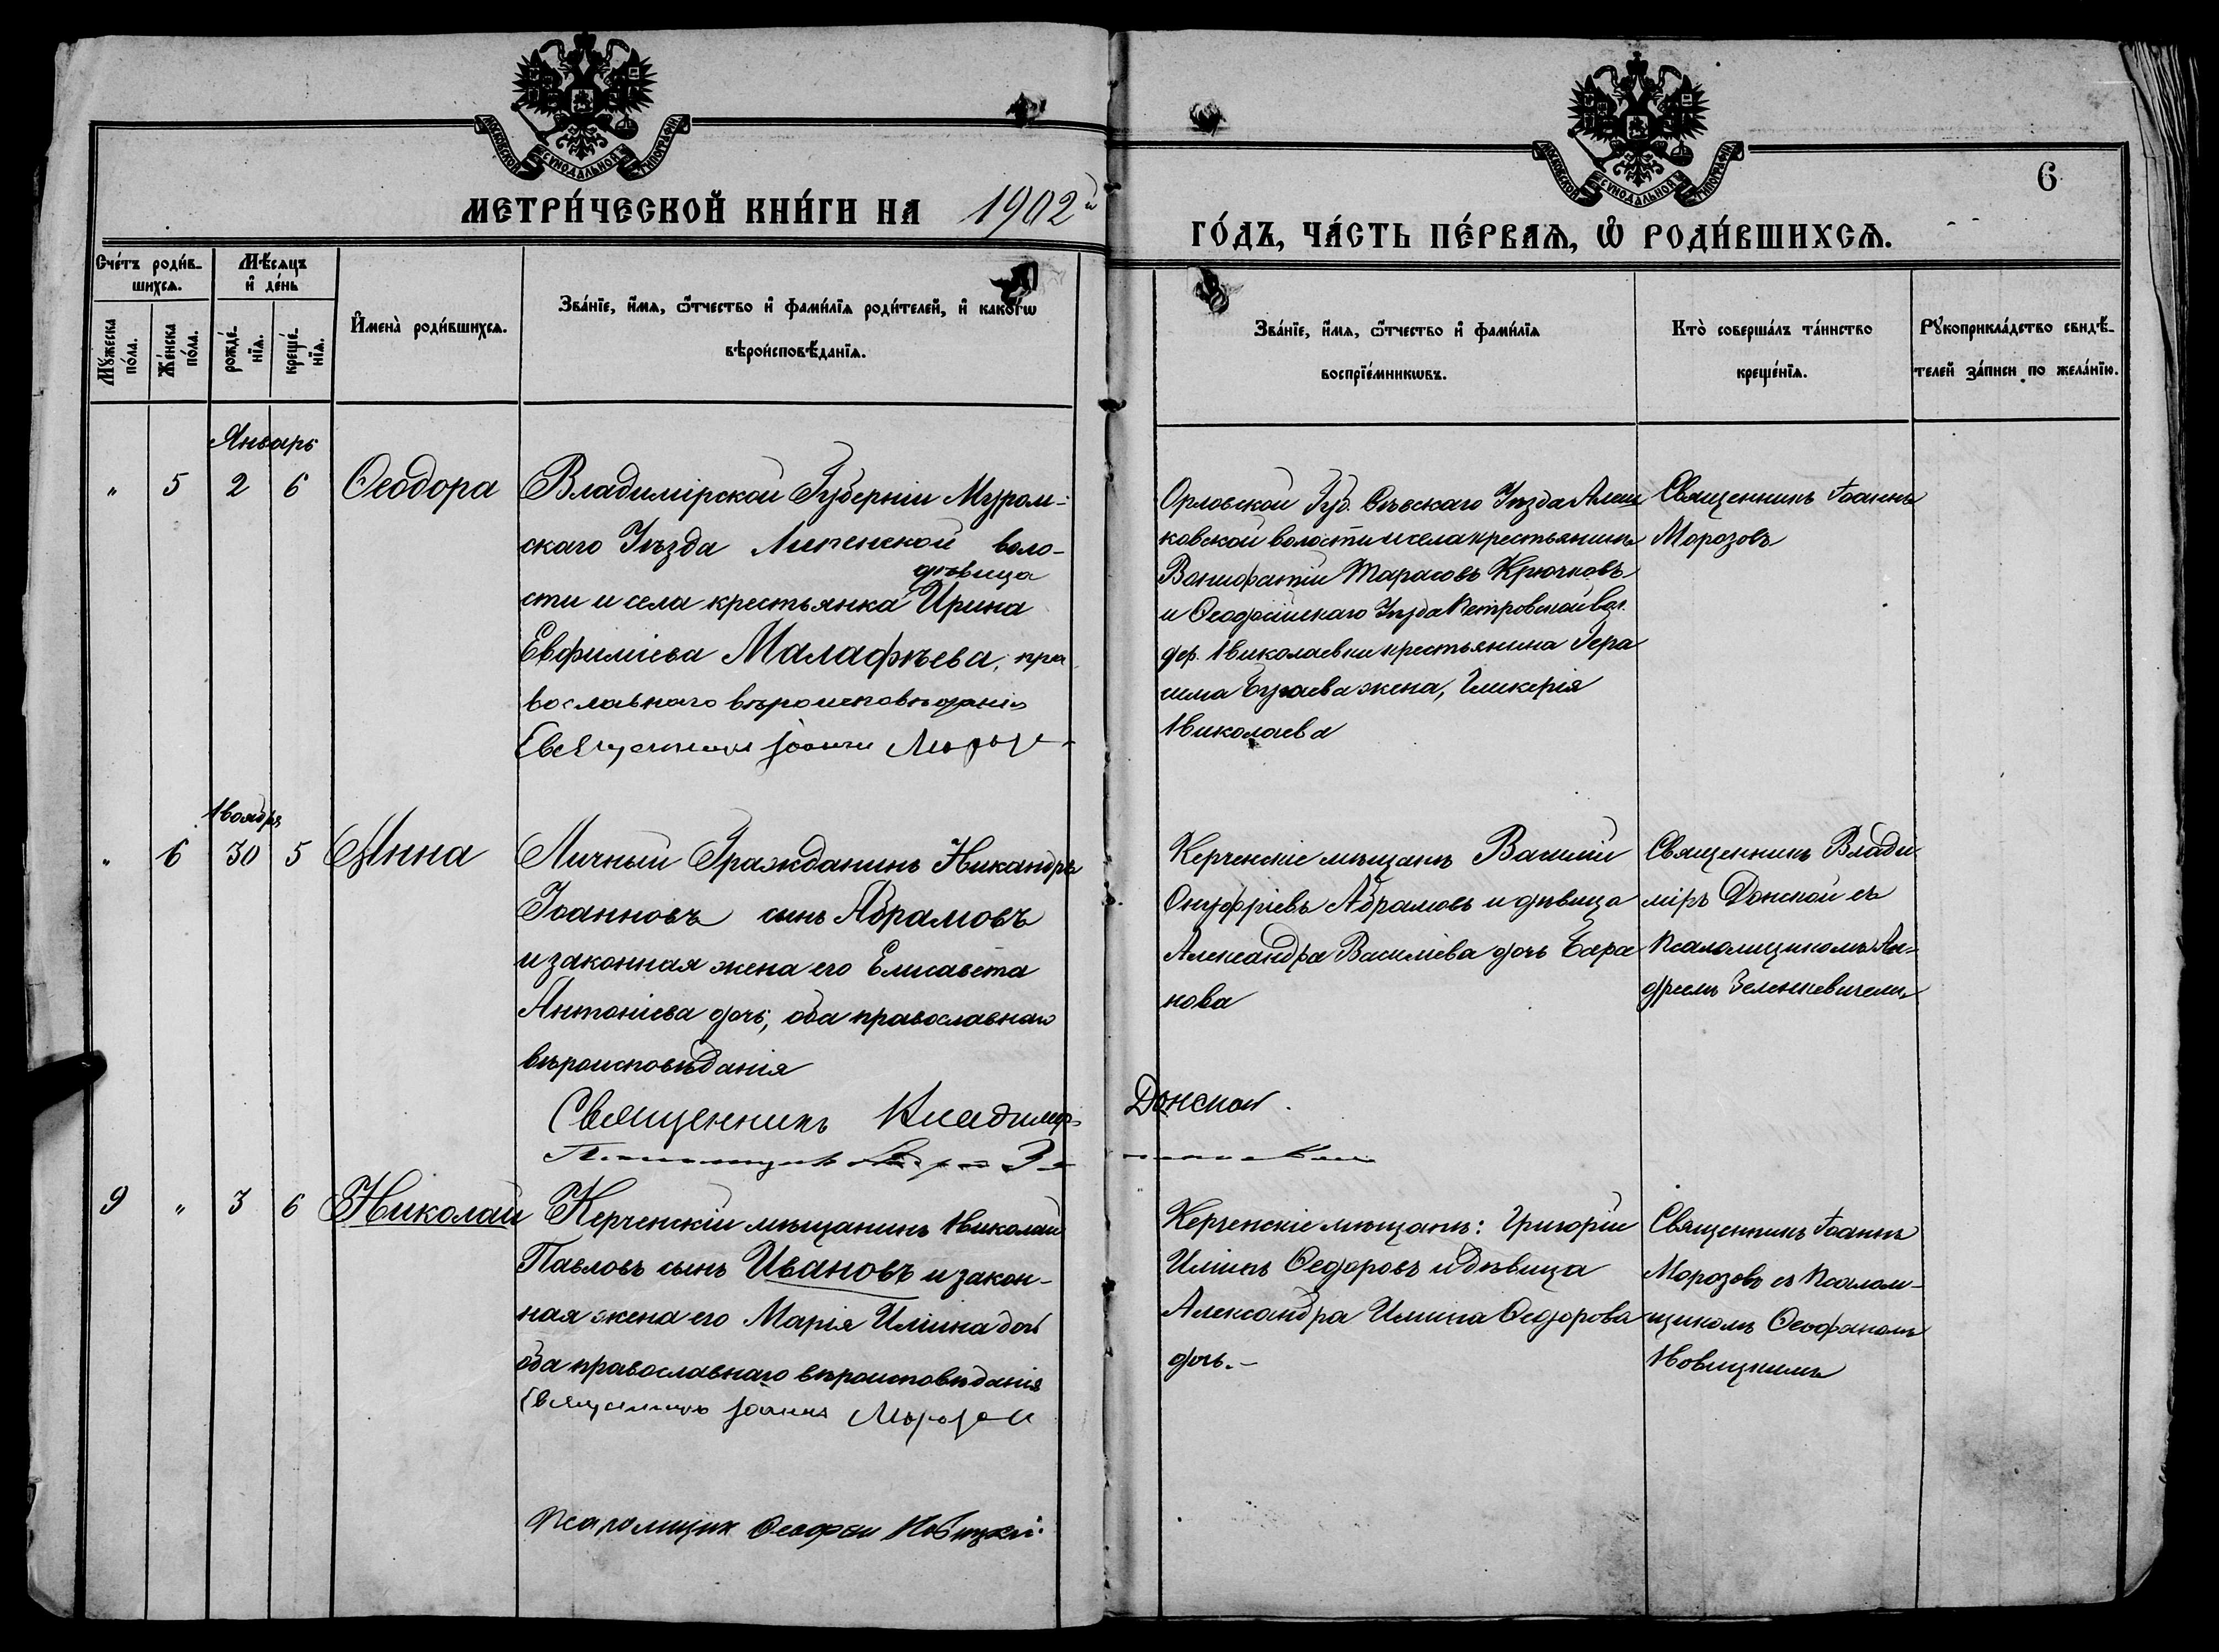 МОСКОВСКОЙ СУНОДАЛЬНОЙ ТИПОГРАФІИ
МОСКОВСКОЙ СУНОДАЛЬНОЙ ТИПОГРАФІИ
6
МЕТРИ́ЧЕСКОЙ КНИ́ГИ НА 1902й
ГО́ДЪ, ЧА́СТЬ ПЕ́РВАѦ, Ѡ РОДИ́ВШИХСѦ.
Сче́тъ роди́в-
шихсѧ.
Мѣ́сѧцъ
и де́нь
Мꙋ́жеска
по́ла.
Же́нска
по́ла.
рожде́-
нїѧ.
креще́-
нїѧ.
Имена̀ роди́вшихсѧ.
Зва́нїе, и́мѧ, ѻ҆́тчество и фами́лїѧ роди́телей, и како́гѡ
вѣроисповѣ́данїѧ.
Зва́нїе, и́мѧ, ѻ҆́тчество и фами́лїѧ
воспрїе́мникѡвъ.
Кто̀ соверша́лъ та́инство
креще́нїѧ.
Рꙋкоприкла́дство свидѣ́-
телей за́писи по жела́нїю.
Январь
" 5 2 6 Ѳеодора
Владимірской Губерніи Муром-
скаго Уѣзда Липенской воло-
дѣвица
сти и села крестьянка Ирина
Евфиміева Малафѣева, пра
вославнаго вѣроисповѣданія
Священникъ Іоаннъ Морозов
Орловской Губ. Сѣвскаго Уѣзда
ковской волости и села крестьянинъ
Вонифатій Тарасовъ Крючковъ
и Ѳеодосійскаго Уѣзда Петровской вол.
дер. Николаевки крестьянина Гера
сима Бугаева жена, Гликерія
Николаева
Священникъ Іоаннъ
Морозовъ
Ноября
" 6 30 5 Анна
Личный Гражданинъ Никандръ
Іоанновъ сынъ Абрамовъ
и законная жена его Елисавета
Антоніева дочь, оба православнаго
вѣроисповѣданія
Священникъ Владиміръ Донской.
Керченскіе мѣщане Василій
Онуфріевъ Абрамовъ и дѣвица
Александра Василіева дочь Бара
нова
Священникъ Влади
міръ Донской съ
Псаломщикомъ Ан-
дреемъ Зеленкевичемъ
9 " 3 6 Николай
Керченскій мѣщанинъ Николай
Павловъ сынъ Ивановъ и закон-
ная жена его Марія Иліина дочь
оба православнаго вѣроисповѣданія
Священникъ Іоаннъ Морозов
Псаломщик Ѳеофан Новицкій
Керченскіе мѣщане: Григорій
Иліинъ Ѳедоровъ и дѣвица
Александра Иліина Ѳедорова
дочь.-
Священникъ Іоаннъ
Морозовъ съ Псалом-
щикомъ Ѳеофаномъ
Новицкимъ